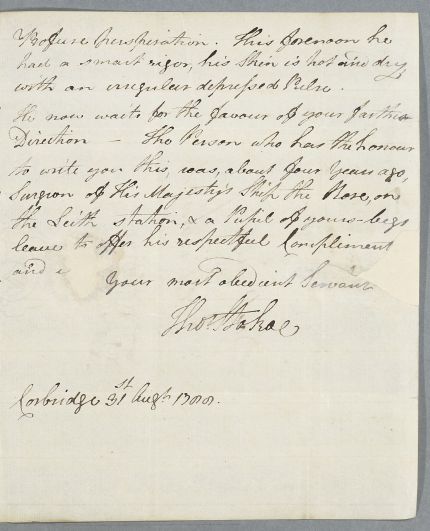 Profuse Perspiration. This forenoon he
had a smart rigor, his skin is hot and dry
with an irregular depressed Pulse.
He now waits for the favour of your farther
Direction — The Person who has the honour
to write you this, was, about four years ago,
Surgeon of His Majesty's Ship the Nore, on
the Leith station, & a Pupil of yours – begs
leave to offer his respectful Compliment
and
Your most obedient Servant
Thos
Corbridge 31st Augt. 1788.